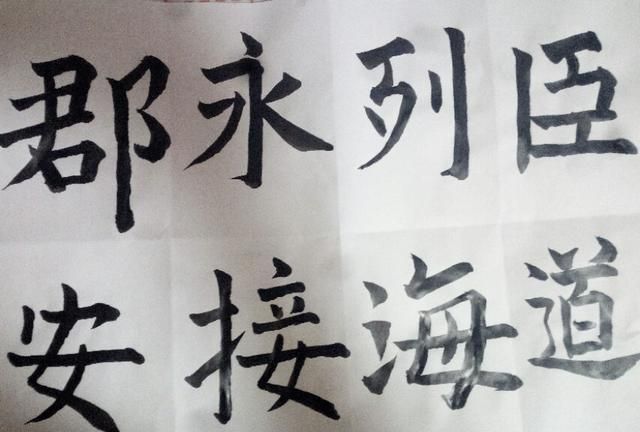 郡永列臣
安接海道